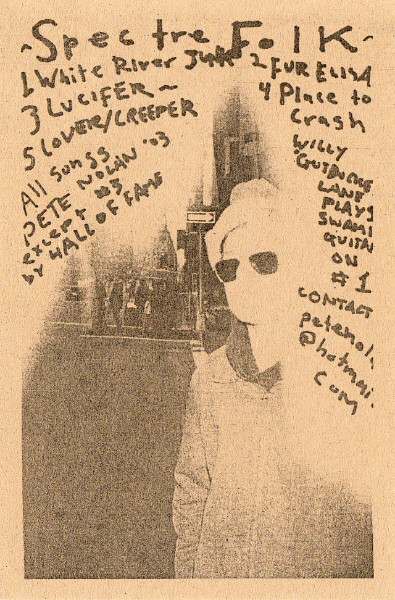 ~Spectre Folk~
1 White River Junk 2 FUR ELISA
3 LUCIFER ~ 4 Place to
Crash
5 LOVER/CREEPER
All songs
PETE NOLAN '03
except #3
by HALL OF FAME
WILLY
LANE
PLAYS
SWAMI
ON
# 1
CONTACT
peten
@hotmai
com